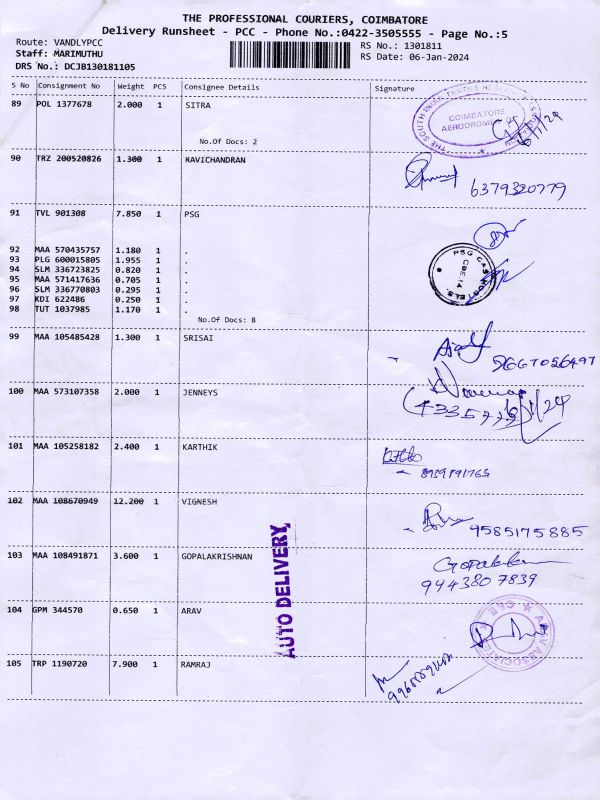 THE PROFESSIONAL COURIERS, COIMBATORE
Delivery Runsheet - PCC - Phone No.:0422-3505555 - Page No.:5
Route: VANDLYPCC
RS No.: 1301811
Staff: MARIMUTHU
RS Date: 06-Jan-2024
DRS No.: DCJB130181105
S No Consignment No Weight PCS Consignee Details Signature
89 POL 1377678 2.000 1 SITRA
COIMBATORE
AERODROME
No.Of Docs: 2
90 TRZ 200520826 1.300 1 RAVICHANDRAN
6379320779
91 TVL 901308 7.850 1 PSG
92 MAA 570435757 1.180 1 .
93 PLG 600015805 1.955 1 .
94 SLM 336723825 0.820 1 .
95 MAA 571417636 0.705 1 .
96 SLM 336770803 0.295 1 .
97 KDI 622486 0.250 1 .
98 TUT 1037985 1.170 1 .
No.Of Docs: 8
99 MAA 105485428 1.300 1 SRISAI
100 MAA 573107358 2.000 1 JENNEYS
101 MAA 105258182 2.400 1 KARTHIK
102 MAA 108670949 12.200 1 VIGNESH
9585175885
AUTO DELIVERY,
103 MAA 108491871 3.600 1 GOPALAKRISHNAN
9443807839
104 GPM 344570 0.650 1 ARAV
105 TRP 1190720 7.900 1 RAMRAJ